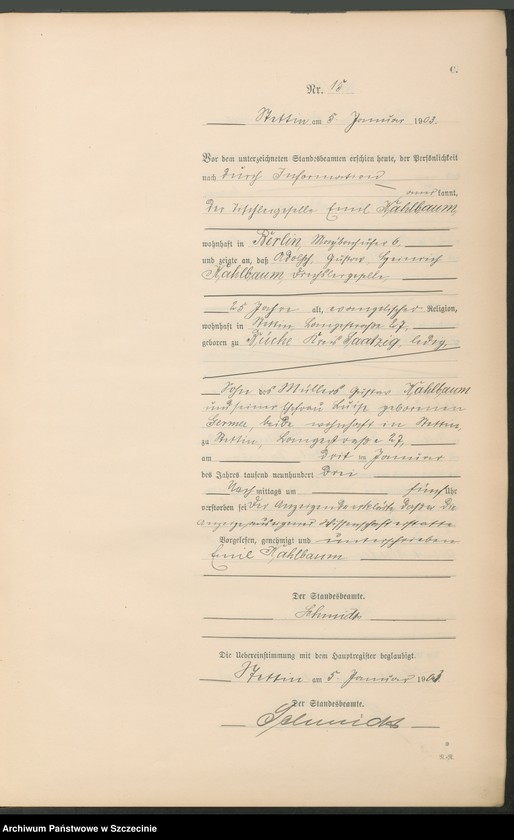 C.
Nr. 15
Stettin am 5 Januar 1903.
Vor dem unterzeichneten Standesbeamten erschien heute, der Persönlichkeit
nach durch Information
anerkannt,
der Tischlergeselle Emil Kahlbaum
wohnhaft in Berlin, Maybachufer 6,
und zeigte an, daß Adolph, Gustav, Heinrich
Kahlbaum, Drechslergeselle,
25 Jahre alt, evangelischer Religion,
wohnhaft in Stettin, Langestraße 27,
geboren zu Büche Kreis Saatzig, ledig,
Sohn des Müllers Gustav Kahlbaum
und seiner Ehefrau Luise geborenen
beide wohnhaft in Stettin,
zu Stettin, Langestraße 27,
am Drei im Januar
des Jahres tausend neunhundert Drei
Nach mittags um fünf Uhr
verstorben sei Der Anzeigende erklärte daß er die
Anzeige aus eigener Wissenschaft erstatte
Vorgelesen, genehmigt und unterschrieben
Emil Kahlbaum
Der Standesbeamte.
Schmidt
Die Uebereinstimmung mit dem Hauptregister beglaubigt.
Stettin am 5. Januar 1903
Der Standesbeamte.
Schmidt
Archiwum Państwowe w Szczecinie